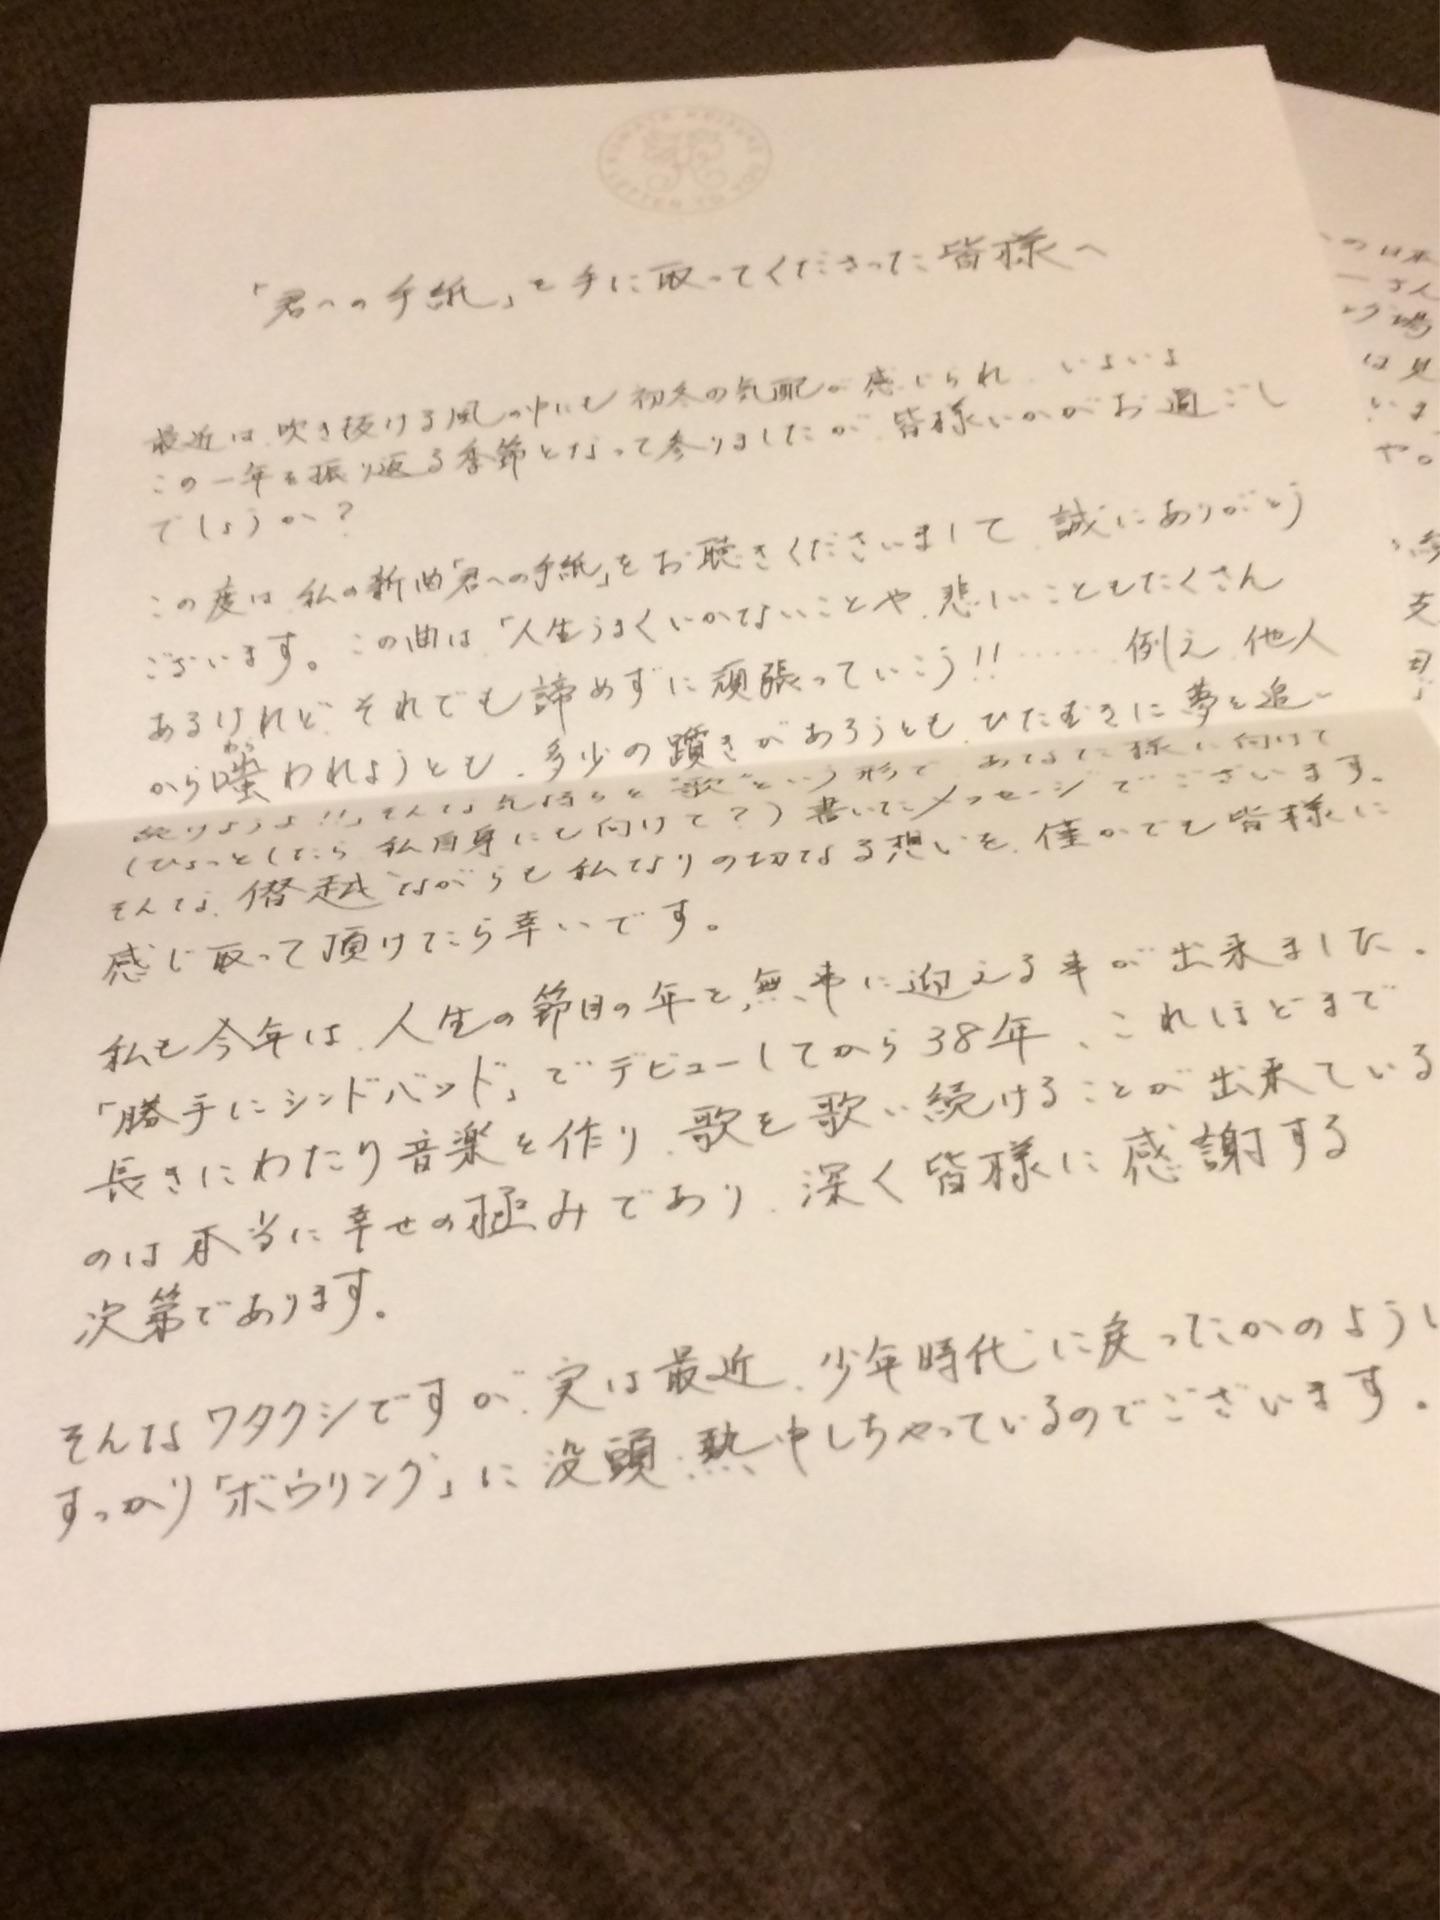 KUWATA KEISUKE
LETTER TO YOU
「君への手紙」を手に取ってくださった皆様へ
最近は、吹き抜ける風の中にも初冬の気配が感じられ、いよいよ
この一年を振り返る季節となって参りましたが、皆様いかがお過ごし
でしょうか?
この度は、私の新曲「君への手紙」をお聴きくださいまして、誠にありがとう
ございます。この曲は、「人生うまくいかないことや、悲しいこともたくさん
あるけれど、それでも諦めずに頑張っていこう!!……例え、他人
から嗤われようとも、多少の躓きがあろうとも、ひたむきに夢を追い
わら
続けようよ!!」そんな気持ちを"歌"という形で、あなた様に向けて
(ひょっとしたら、私自身にも向けて?)書いたメッセージでございます。
そんな、僭越ながらも私なりの切なる想いを、僅かでも皆様に
感じ取って頂けたら幸いです。
私も今年は、人生の節目の年を、無事に迎える事が出来ました。
「勝手にシンドバッド」でデビューしてから38年、これほどまで
長きにわたり音楽を作り、歌を歌い続けることが出来ている
のは本当に幸せの極みであり、深く皆様に感謝する
次第であります。
そんなワタクシですが、実は最近、少年時代に戻ったかのように
すっかり「ボウリング」に没頭、熱中しちゃっているのでございます。
の日本
場
は見
いま
や。
支